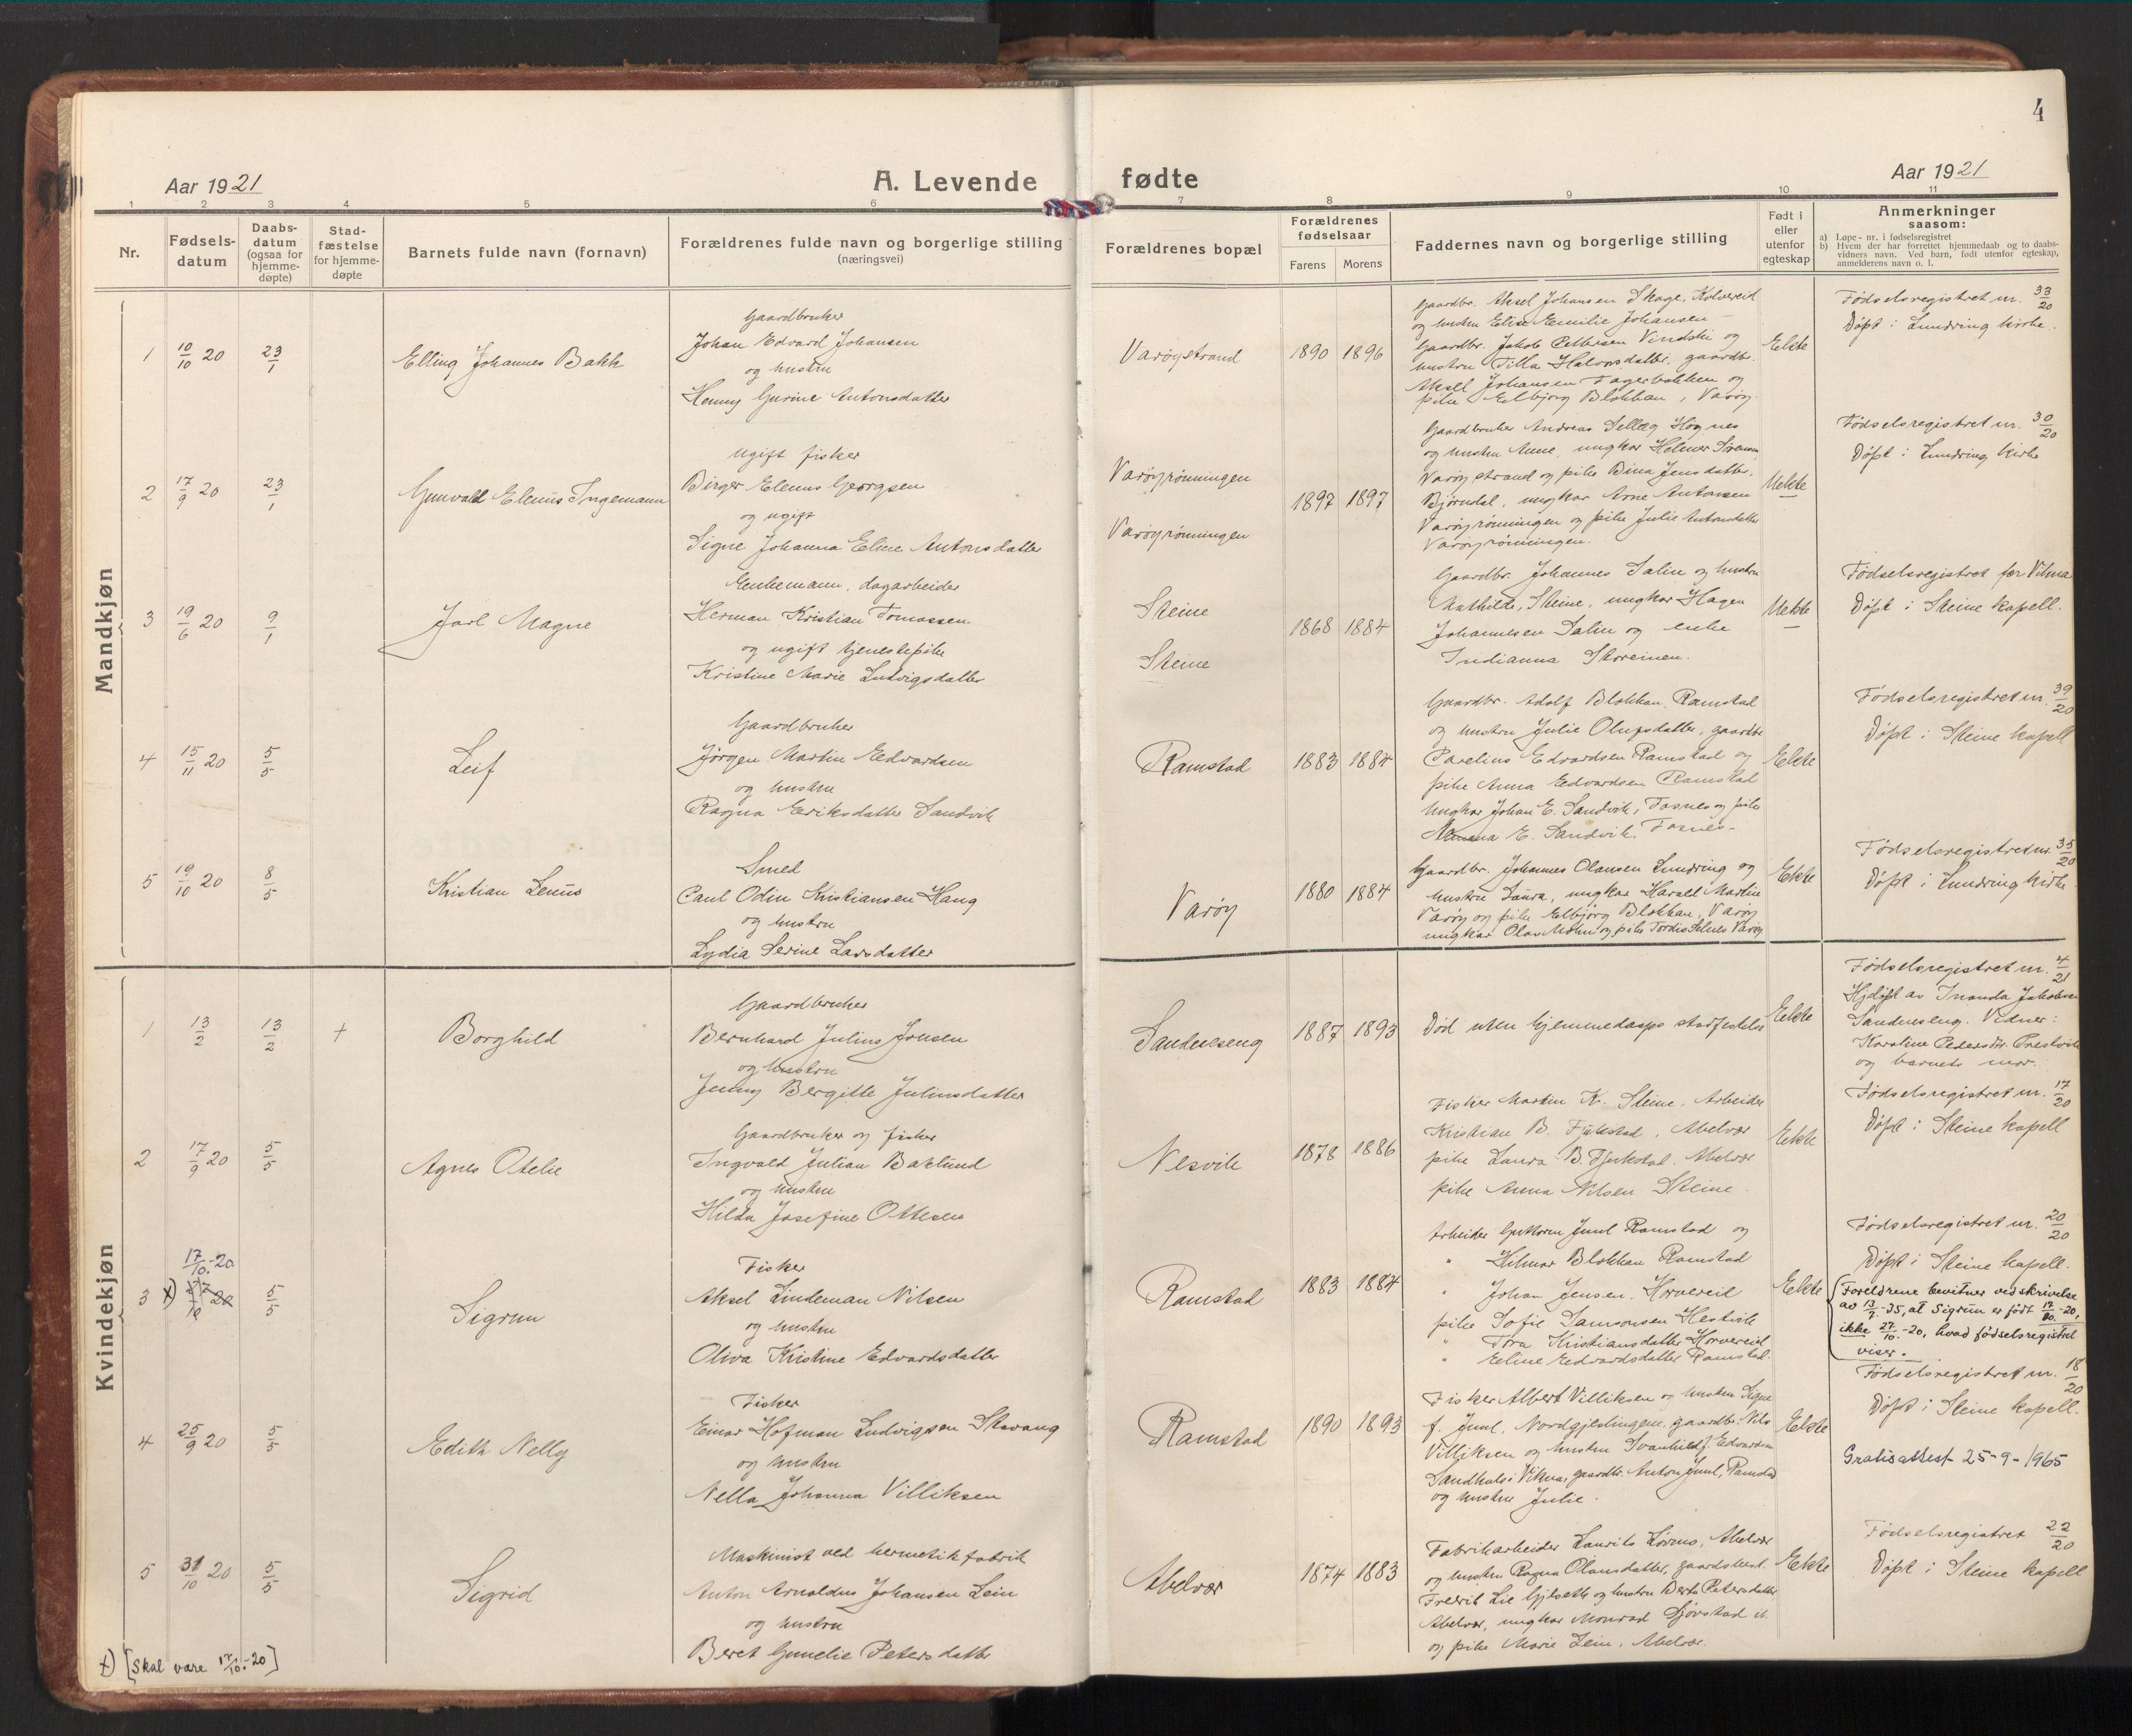 4
Aar 1921
A. Levende fødte
Aar 1921
1 2 3 4 5 6 7 8 9 10 11
Nr.
Fødsels-
datum
Daabs-
datum
(ogsaa for
hjemme-
døpte)
Stad-
fæstelse
for hjemme-
døpte
Barnets fulde navn (fornavn)
Forældrenes fulde navn og borgerlige stilling
(næringsvei)
Forældrenes bopæl
Forældrenes
fødselsaar
Farens Morens
Faddernes navn og borgerlige stilling
Født i
eller
utenfor
egteskap
Anmerkninger
saasom:
a) Løpe-nr. i fødselsregistret
b) Hvem der har forrettet hjemmedaab og to daabs-
vidners navn. Ved barn, født utenfor egteskap,
anmelderens navn o. l.
Mandkjøn
1 10/10 20 23/1 Elling Johannes Bakk
Gaardbruker
Johan Edvard Johansen
og hustru
Henny Gurine Antonsdatter
Varøystrand 1890 1896
Gaardbr. Aksel Johansen Skage, Kolvereid
og hustru Elise Emilie Johansen
Gaardbr. Jakob Pettersen Vindshi og
hustru Tilla Halvorsdatter, gaardbr.
Aksel Johansen Fagerbakken og
pike Elbjørg Blokkan, Varøy.
Ekte
Fødselsregistret nr. 33/20
Døpt i Lundring kirke.
2 17/9 20 23/1 Gunvald Elenus Ingemann
Ugift fisker
Birger Elenus Georgsen
og ugift
Signe Johanna Eline Antonsdatter
Varøyrønningen
Varøyrønningen
1897 1897
Gaardbruker Andreas Sellæg Høgnes
og hustru Anne, ungkar Helmer Sørensen
Varøystrand og pike Bina Jensdatter,
Bjørndal, ungkar Arne Antonsen
Varøyrønningen og pike Julie Antonsdatter
Varøyrønningen.
Uekte
Fødselsregistret nr. 30/20
Døpt i Lundring kirke
3 19/6 20 9/1 Jarl Magne
Enkemann, dagarbeider
Herman Kristian Tomassen
og ugift tjenestepike
Kristine Marie Ludvigsdatter
Steine
Steine
1868 1884
Gaardbr. Johannes Salin og hustru
Mathilde, Steine, ungkar Hagen
Johannesen Salin og enke
Indianna Storeinen.
Uekte
Fødselsregistret for Vikna
Døpt i Steine kapell.
4 15/11 20 5/5 Leif
Gaardbruker
Jørgen Martin Edvardsen
og hustru
Ragna Eriksdatter Sandvik
Ramstad 1883 1884
Gaardbr. Adolf Blokkan Ramstad
og hustru Julie Olufsdatter, gaardbr.
Parelius Edvardsen Ramstad og
pike Anna Edvardsen Ramstad
Ungkar Johan E. Sandvik, Fosnes og pike
E. Sandvik, Fosnes-
Ekte
Fødselsregistret nr. 39/20
Døpt i Steine kapell
5 19/10 20 8/5 Kristian Lenus
Smed
Paul Odin Kristiansen Haug
og hustru
Lydia Serine Larsdatter
Varøy 1880 1884
Gaardbr. Johannes Olausen Lundring og
hustru Laura, ungkar Harald Martin
Varøy og pike Elbjørg Blokkan, Varøy
ungkar Olav Mohn og pike Tordis Selnes Varøy
Ekte
Fødselsregistret nr. 35/20
Døpt i Lundring kirke
Kvindekjøn
1 13/2 13/2 + Borghild
Gaardbruker
Bernhard Julius Jensen
og hustru
Jenny Bergitte Juliusdatter
Sandneseng 1887 1893
Død uten hjemmedaaps stadfestelse
Ekte
Fødselsregistret nr. 4/21
Hjdøpt av Inanda Jakobsen
Sandneseng. Vidner:
Karoline Pedersdtr. Prestvik
og barnets mor.
2 17/9 20 5/5 Agnes Otelie
Gaardbruker og fisker
Ingvald Julian Baklund
og hustru
Hilda Josefine Ottesen
Nesvik 1878 1886
Fisker Martin K. Steine, Arbeider
Kristian B. Fjukstad, Abelvær
pike Laura B. Fjukstad, Abelvær
pike Anna Nilsen Steine.
Ekte
Fødselsregistret nr. 17/20
Døpt i Steine kapell
17/10.-20
3 x) 27/10 20 5/5 Sigrun
Fisker
Aksel Lindeman Nilsen
og hustru
Oliva Kristine Edvardsdatter
Ramstad 1883 1884
Arbeider Guttorm Juul Ramstad og
" Hilmar Blokkan Ramstad
" Johan Jensen, Horvereid
pike Sofie Samsonsen Hestvik
" Tora Kristiansdatter Horvereid
" Eline Edvardsdatter Ramstad.
Ekte
Fødselsregistret nr. 20/20
Døpt i Steine kapell.
Foreldrene bevitner ved skrivelse
av 13/7-35, at Sigrun er født 17/10.-20,
ikke 27/10.-20, hvad fødselsregistret
viser.
4 25/9 20 5/5 Edith Nelly
Fisker
Einar Hofman Ludvigsen Skavang
og hustru
Nella Johanna Villiksen
Ramstad 1890 1893
Fisker Albert Villiksen og hustru Signe
f. Juul, Nordgjæslingen, gaardbr. Nils
Villiksen og hustru Svanhild f. Edvardsen
Sandhals i Vikna, gaardbr. Anton Juul, Ramstad
og hustru Julie.
Ekte
Fødselsregistret nr. 18/20
Døpt i Steine kapell.
Gratisattest 25-9-1965
5 31/10 20 5/5 Sigrid
Maskinist ved hermetikfabrik
Anton Arnoldus Johansen Lein
og hustru
Beret Gunelie Petersdatter
Abelvær 1874 1883
Fabrikarbeider Laurits Lorens, Abelvær
og hustru Ragna Olausdatter, gaardsbest.
Fredrik Lie Gjelseth og hustru Berta Petersdatter
Abelvær, ungkar Monrad Sjøvstad
og pike Marie Lein, Abelvær.
Ekte
Fødselsregistret 22/20
Døpt i Steine kapell
x) [Skal være 17/10.-20]